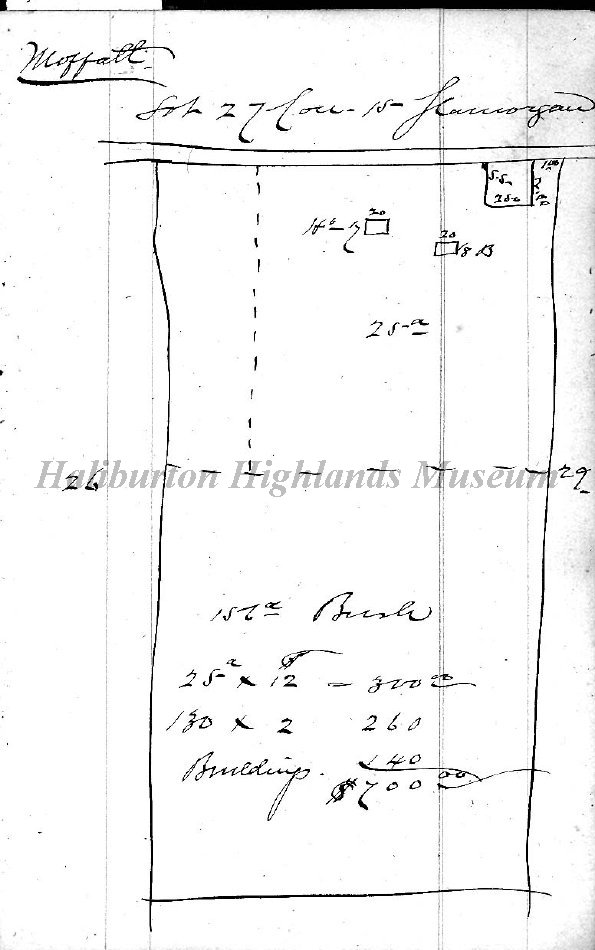 Moffatt
Lot 27 Con - 15 Glamorgan
100
55
250
2
20
Ho
20
18 B
25 a
Haliburton Highlands Museum
26
29
Bush
25 a x $12 - 300 00
130 x 2 260
Buildings. 140
$700 00